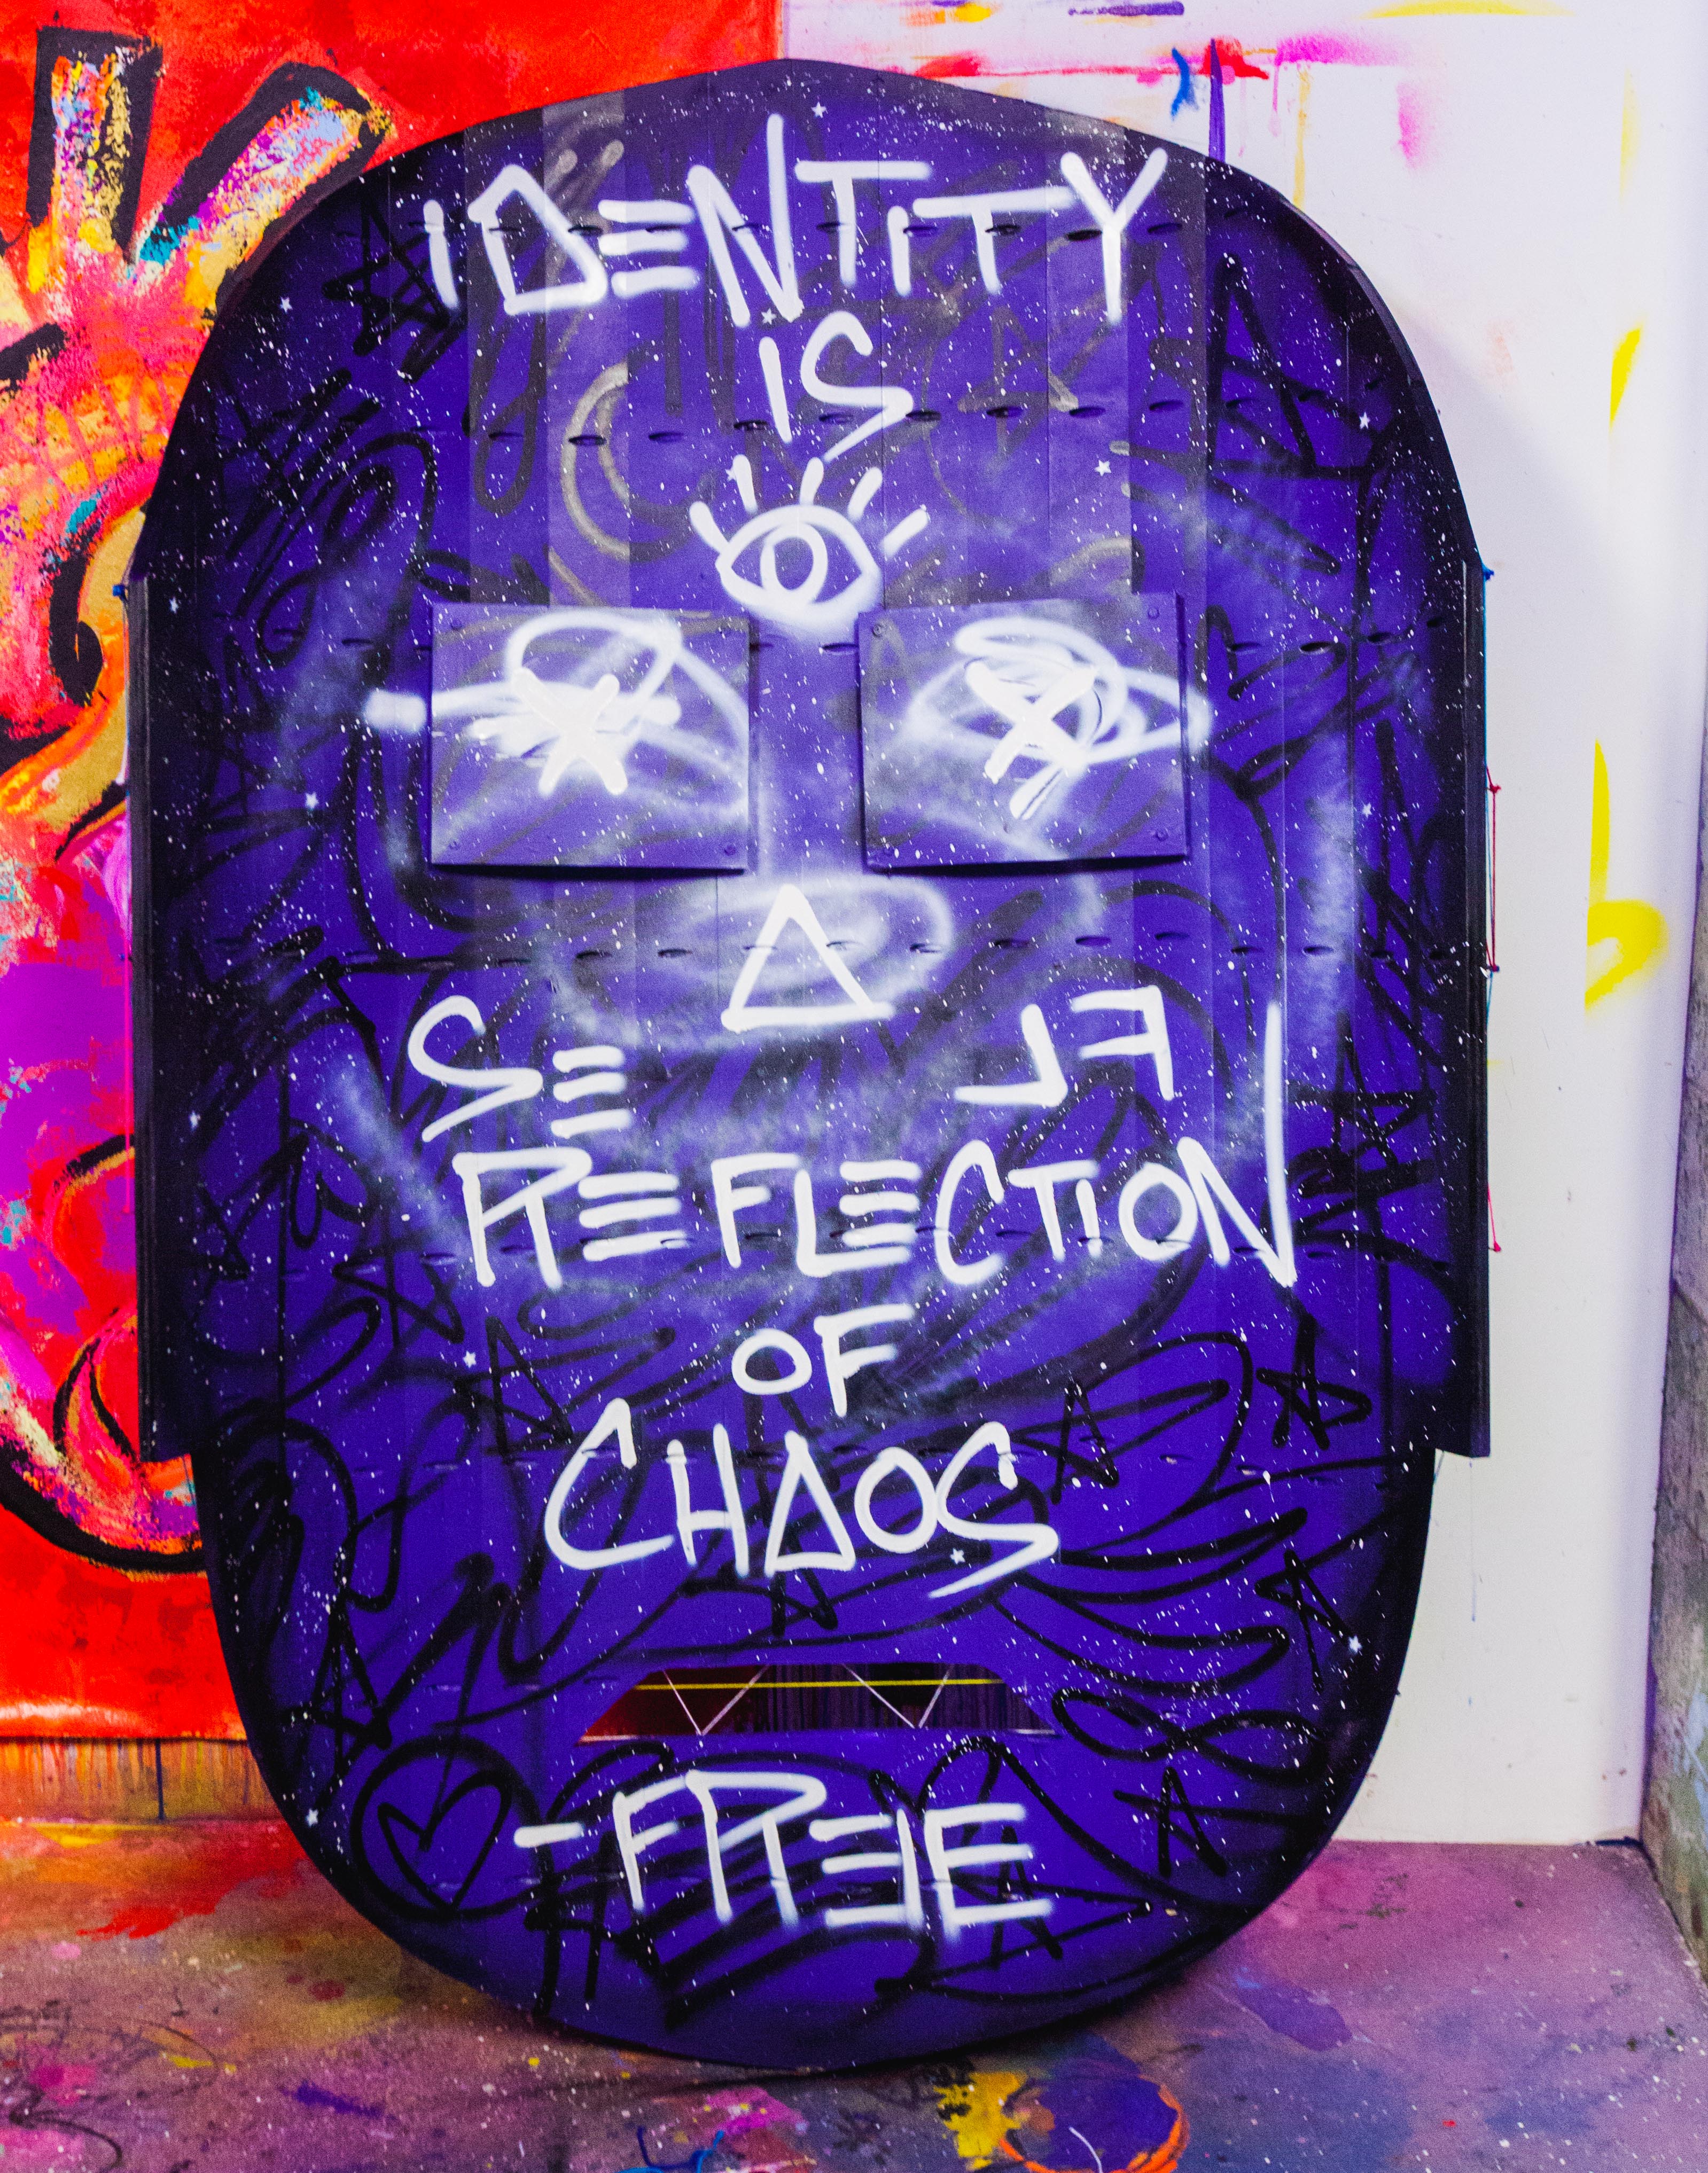 IDENTITY
IS
A
SE LF
REFLECTION
OF
CHAOS
-FREE